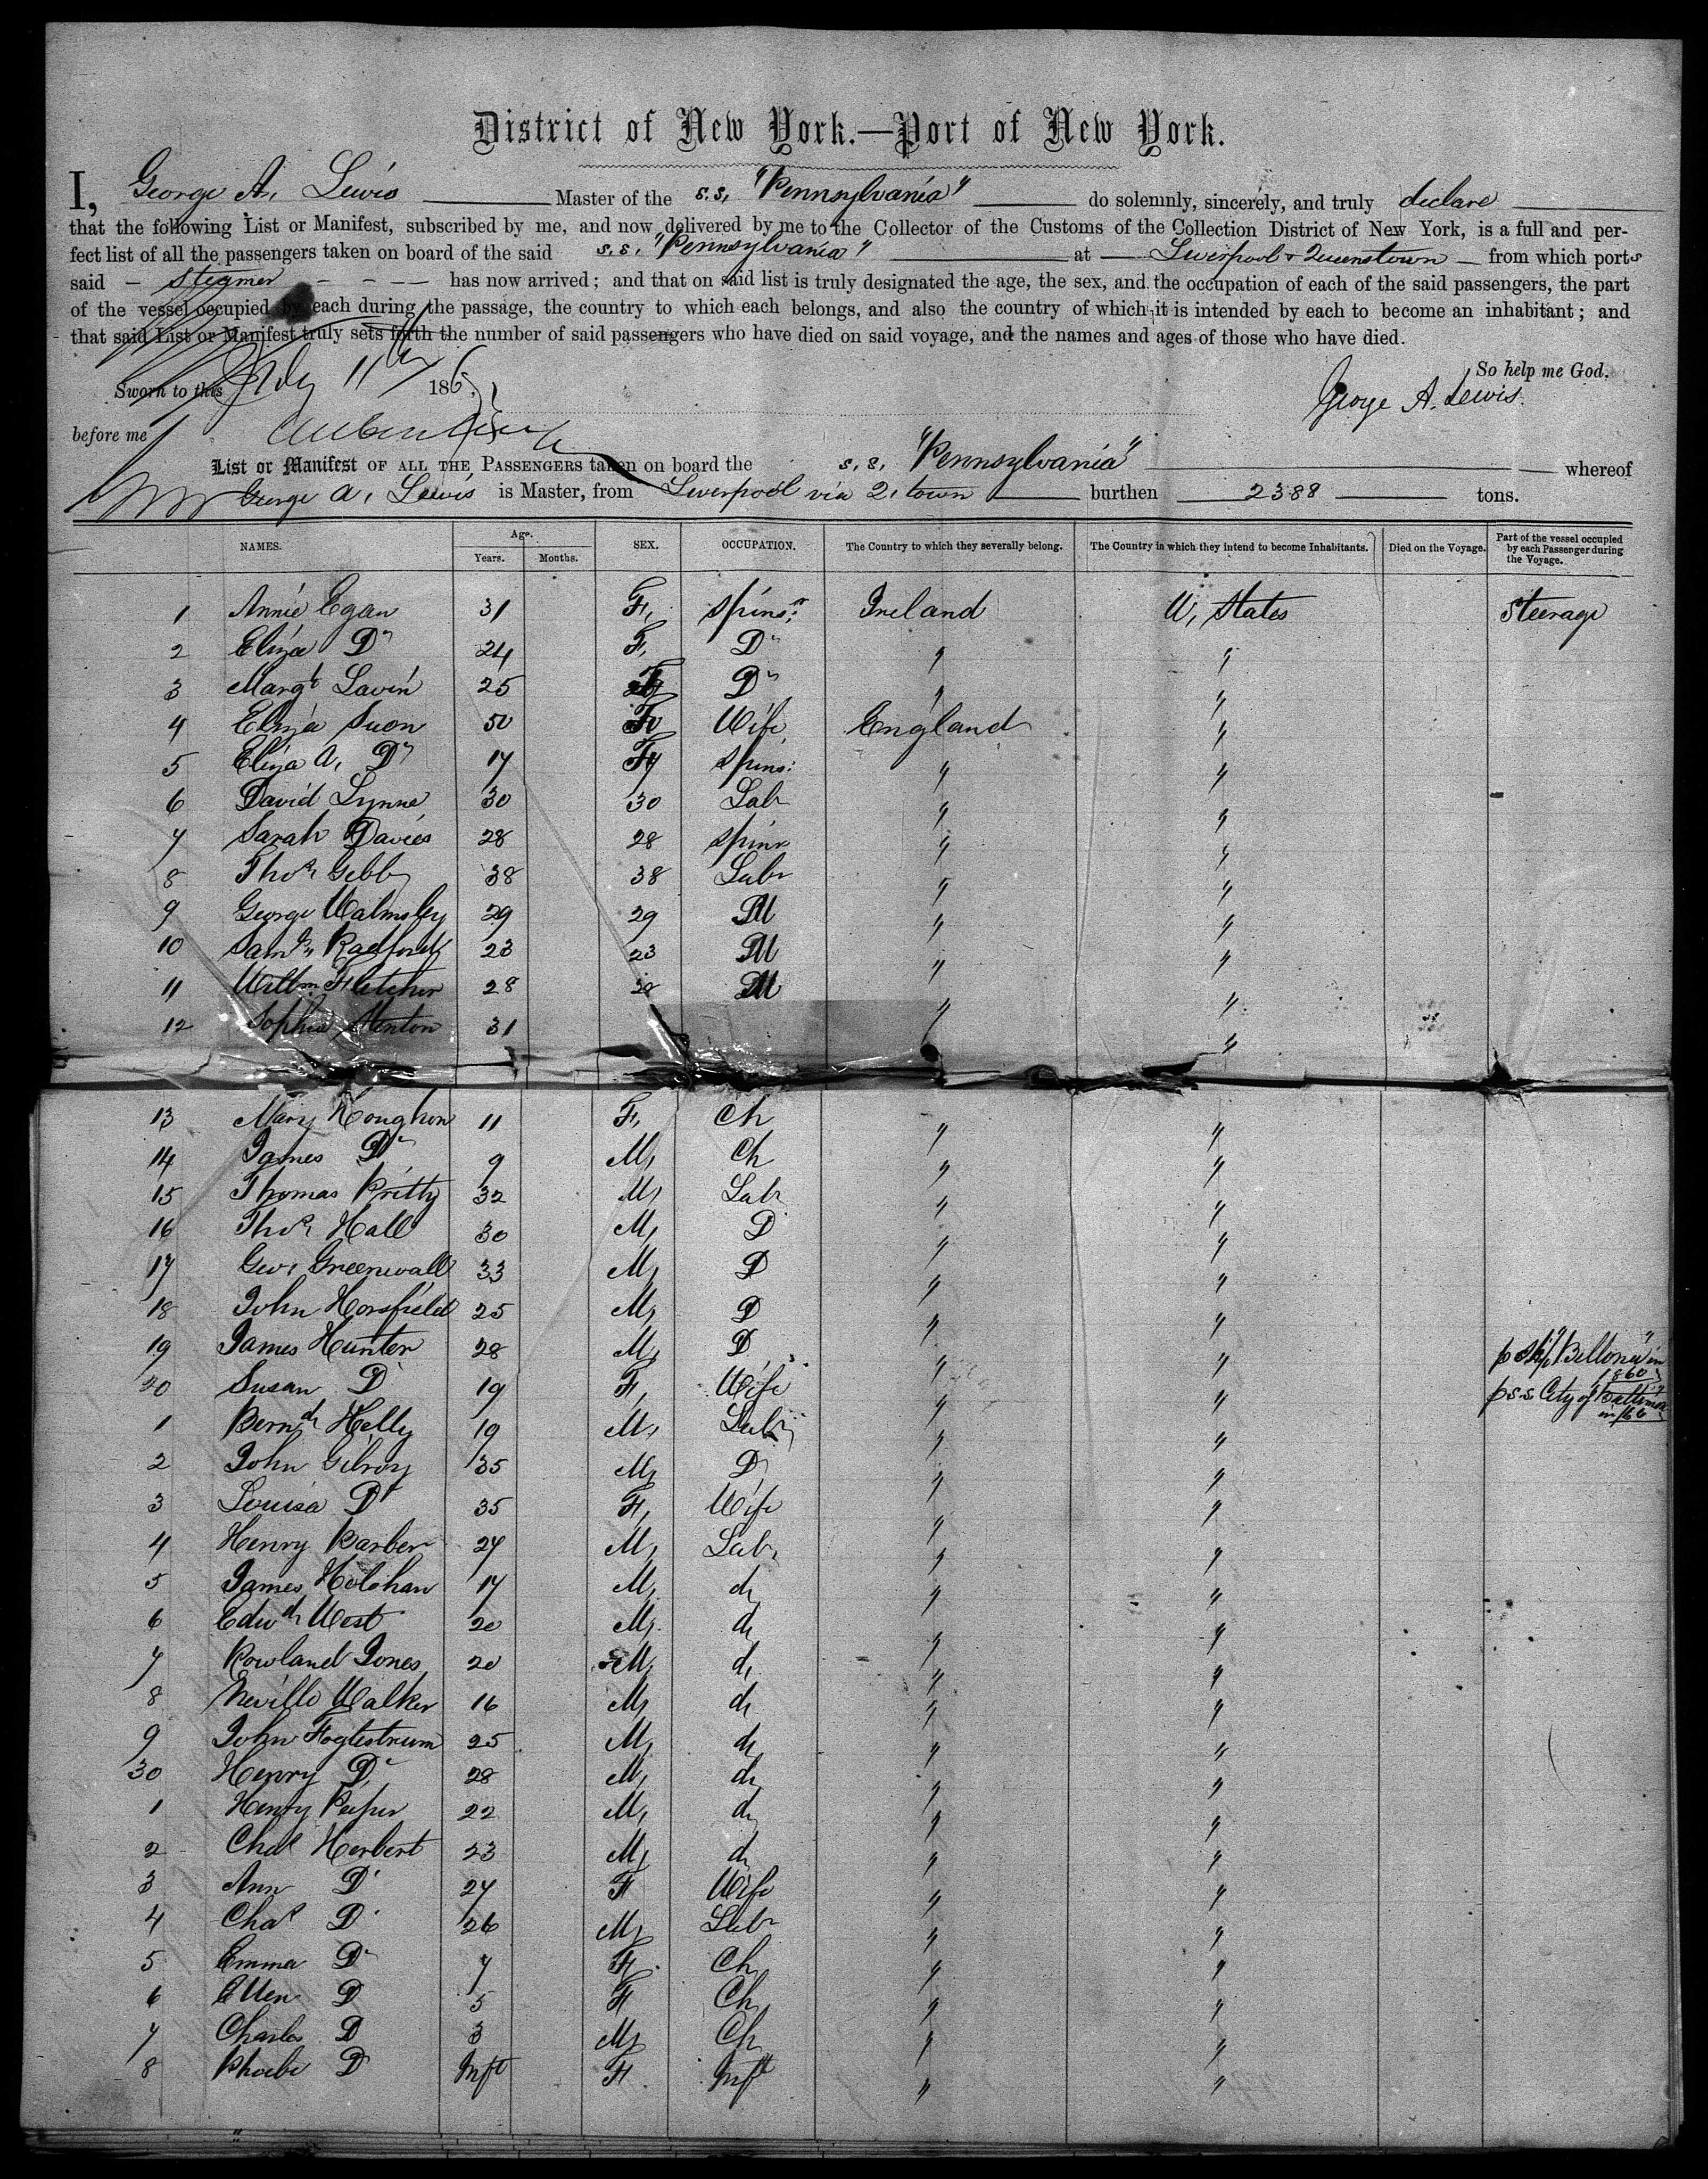 District of New York.—Port of New York.
I, George A. Lewis Master of the s.s. "Pennsylvania" do solemnly, sincerely, and truly declare
that the following List or Manifest, subscribed by me, and now delivered by me to the Collector of the Customs of the Collection District of New York, is a full and per-
fect list of all the passengers taken on board of the said s.s. "Pennsylvania" at Liverpool & Queenstown from which ports
said steamer has now arrived; and that on said list is truly designated the age, the sex, and the occupation of each of the said passengers, the part
of the vessel occupied by each during the passage, the country to which each belongs, and also the country of which it is intended by each to become an inhabitant; and
that said List or Manifest truly sets forth the number of said passengers who have died on said voyage, and the names and ages of those who have died.
So help me God.
Sworn to this 11th 186
George A. Lewis.
before me
List or Manifest OF ALL THE PASSENGERS taken on board the s.s. "Pennsylvania" whereof
George A. Lewis is Master, from Liverpool via Q. town burthen 2388 tons.
NAMES. Age. Years. Months. SEX. OCCUPATION. The Country to which they severally belong. The Country in which they intend to become Inhabitants. Died on the Voyage. Part of the vessel occupied by each Passenger during the Voyage.
1 Annie Egan 31 F. spinsr Ireland U. States Steerage
2 Eliza Do 24 F. Do " "
3 Margt Lavin 25 F Do " "
4 Eliza Suon 50 F Wife England "
5 Eliza A. Do 17 F spins: " "
6 David Lynne 30 30 Labr " "
7 Sarah Davies 28 28 spinr " "
8 Thos Gibb 38 38 Labr " "
9 George Walmsley 29 29 M " "
10 Saml. Radford 23 23 M " "
11 Willm Fletcher 28 28 M " "
12 Sophia Menton 31 " "
13 Mary Houghton 11 F. Ch " "
14 James Do 9 M. Ch " "
15 Thomas Pritty 32 M. Labr " "
16 Thos Hall 30 M. D " "
17 Geo. Greenwall 33 M. D " "
18 John Horsfield 25 M. D " "
19 James Hunter 28 M. D " " p ship "Bellona" in 1860
20 Susan D 19 F. Wife " " p s.s. City of Baltimore in /66
1 Bernd Helly 19 M. Labr " "
2 John Gilroy 35 M. D " "
3 Louisa Do 35 F. Wife " "
4 Henry Barber 24 M. Labr " "
5 James Holohan 17 M. do " "
6 Edwd West 20 M. do " "
7 Rowland Jones 20 M. do " "
8 Neville Walker 16 M. do " "
9 John Foglestrum 25 M. do " "
30 Henry Do 28 M. do " "
1 Henry Peeper 22 M. do " "
2 Chas Herbert 23 M. do " "
3 Ann D 24 F Wife " "
4 Chas D 26 M. Labr " "
5 Emma Do 7 F. Ch " "
6 Ellen D 5 F Ch " "
7 Charles D 3 M. Ch " "
8 Phoebe D Inft F Inft " "